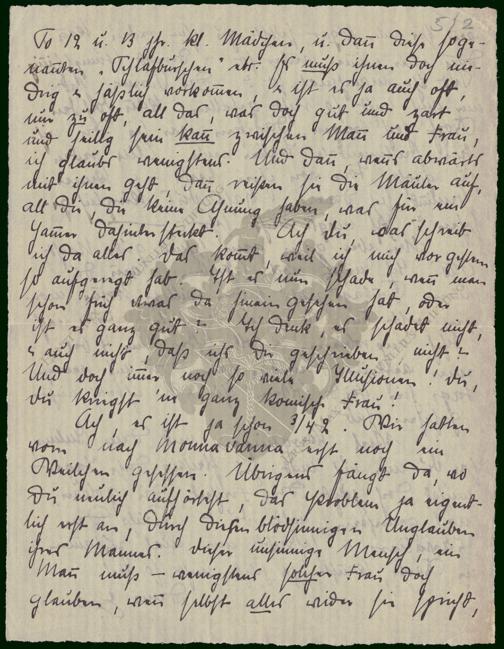 5/2
So 12 u. 13 jhr. kl. Mädchen, u. dañ diese soge-
nannten „Schlafburschen" etc. Es muß ihnen doch nie-
drig & häßlich vorkommen, & ist es ja auch oft,
nur zu oft, all das, was doch gut und zart
und heilig sein kañ zwischen Mañ und Frau,
ich glaube wenigstens. Und dañ, wenns abwärts
mit ihnen geht, dañ reißen sie die Mäuler auf,
all die, die keine Ahnung haben, was für ein
Jamer dahintersteckt. Ach du, was schreib
ich da alles. Das komt, weil ich mich vorgestern
so aufgeregt hab. Ist es nun schade, weñ man
schon früh etwas da hineingesehen hat, oder
ist es ganz gut? Ich denk, es schadet nicht,
& auch nicht, daß ichs dir geschrieben, nicht?
Und doch imer noch so viele Illusionen! du,
du kriegst 'ne ganz komische Frau!
Ach, es ist ja schon 3/4 2. Wir hatten
vorn nach Monna vanna erst noch ein
Weilchen gesessen. Übrigens fängt da, wo
du neulich aufhörtest, das Problem ja eigent-
lich erst an, durch diesen blödsinnigen Unglauben
ihres Mannes. Dieser unsinnige Mensch, ein
Mañ muß – wenigstens solcher Frau doch
glauben, weñ selbst alles wider sie spricht,